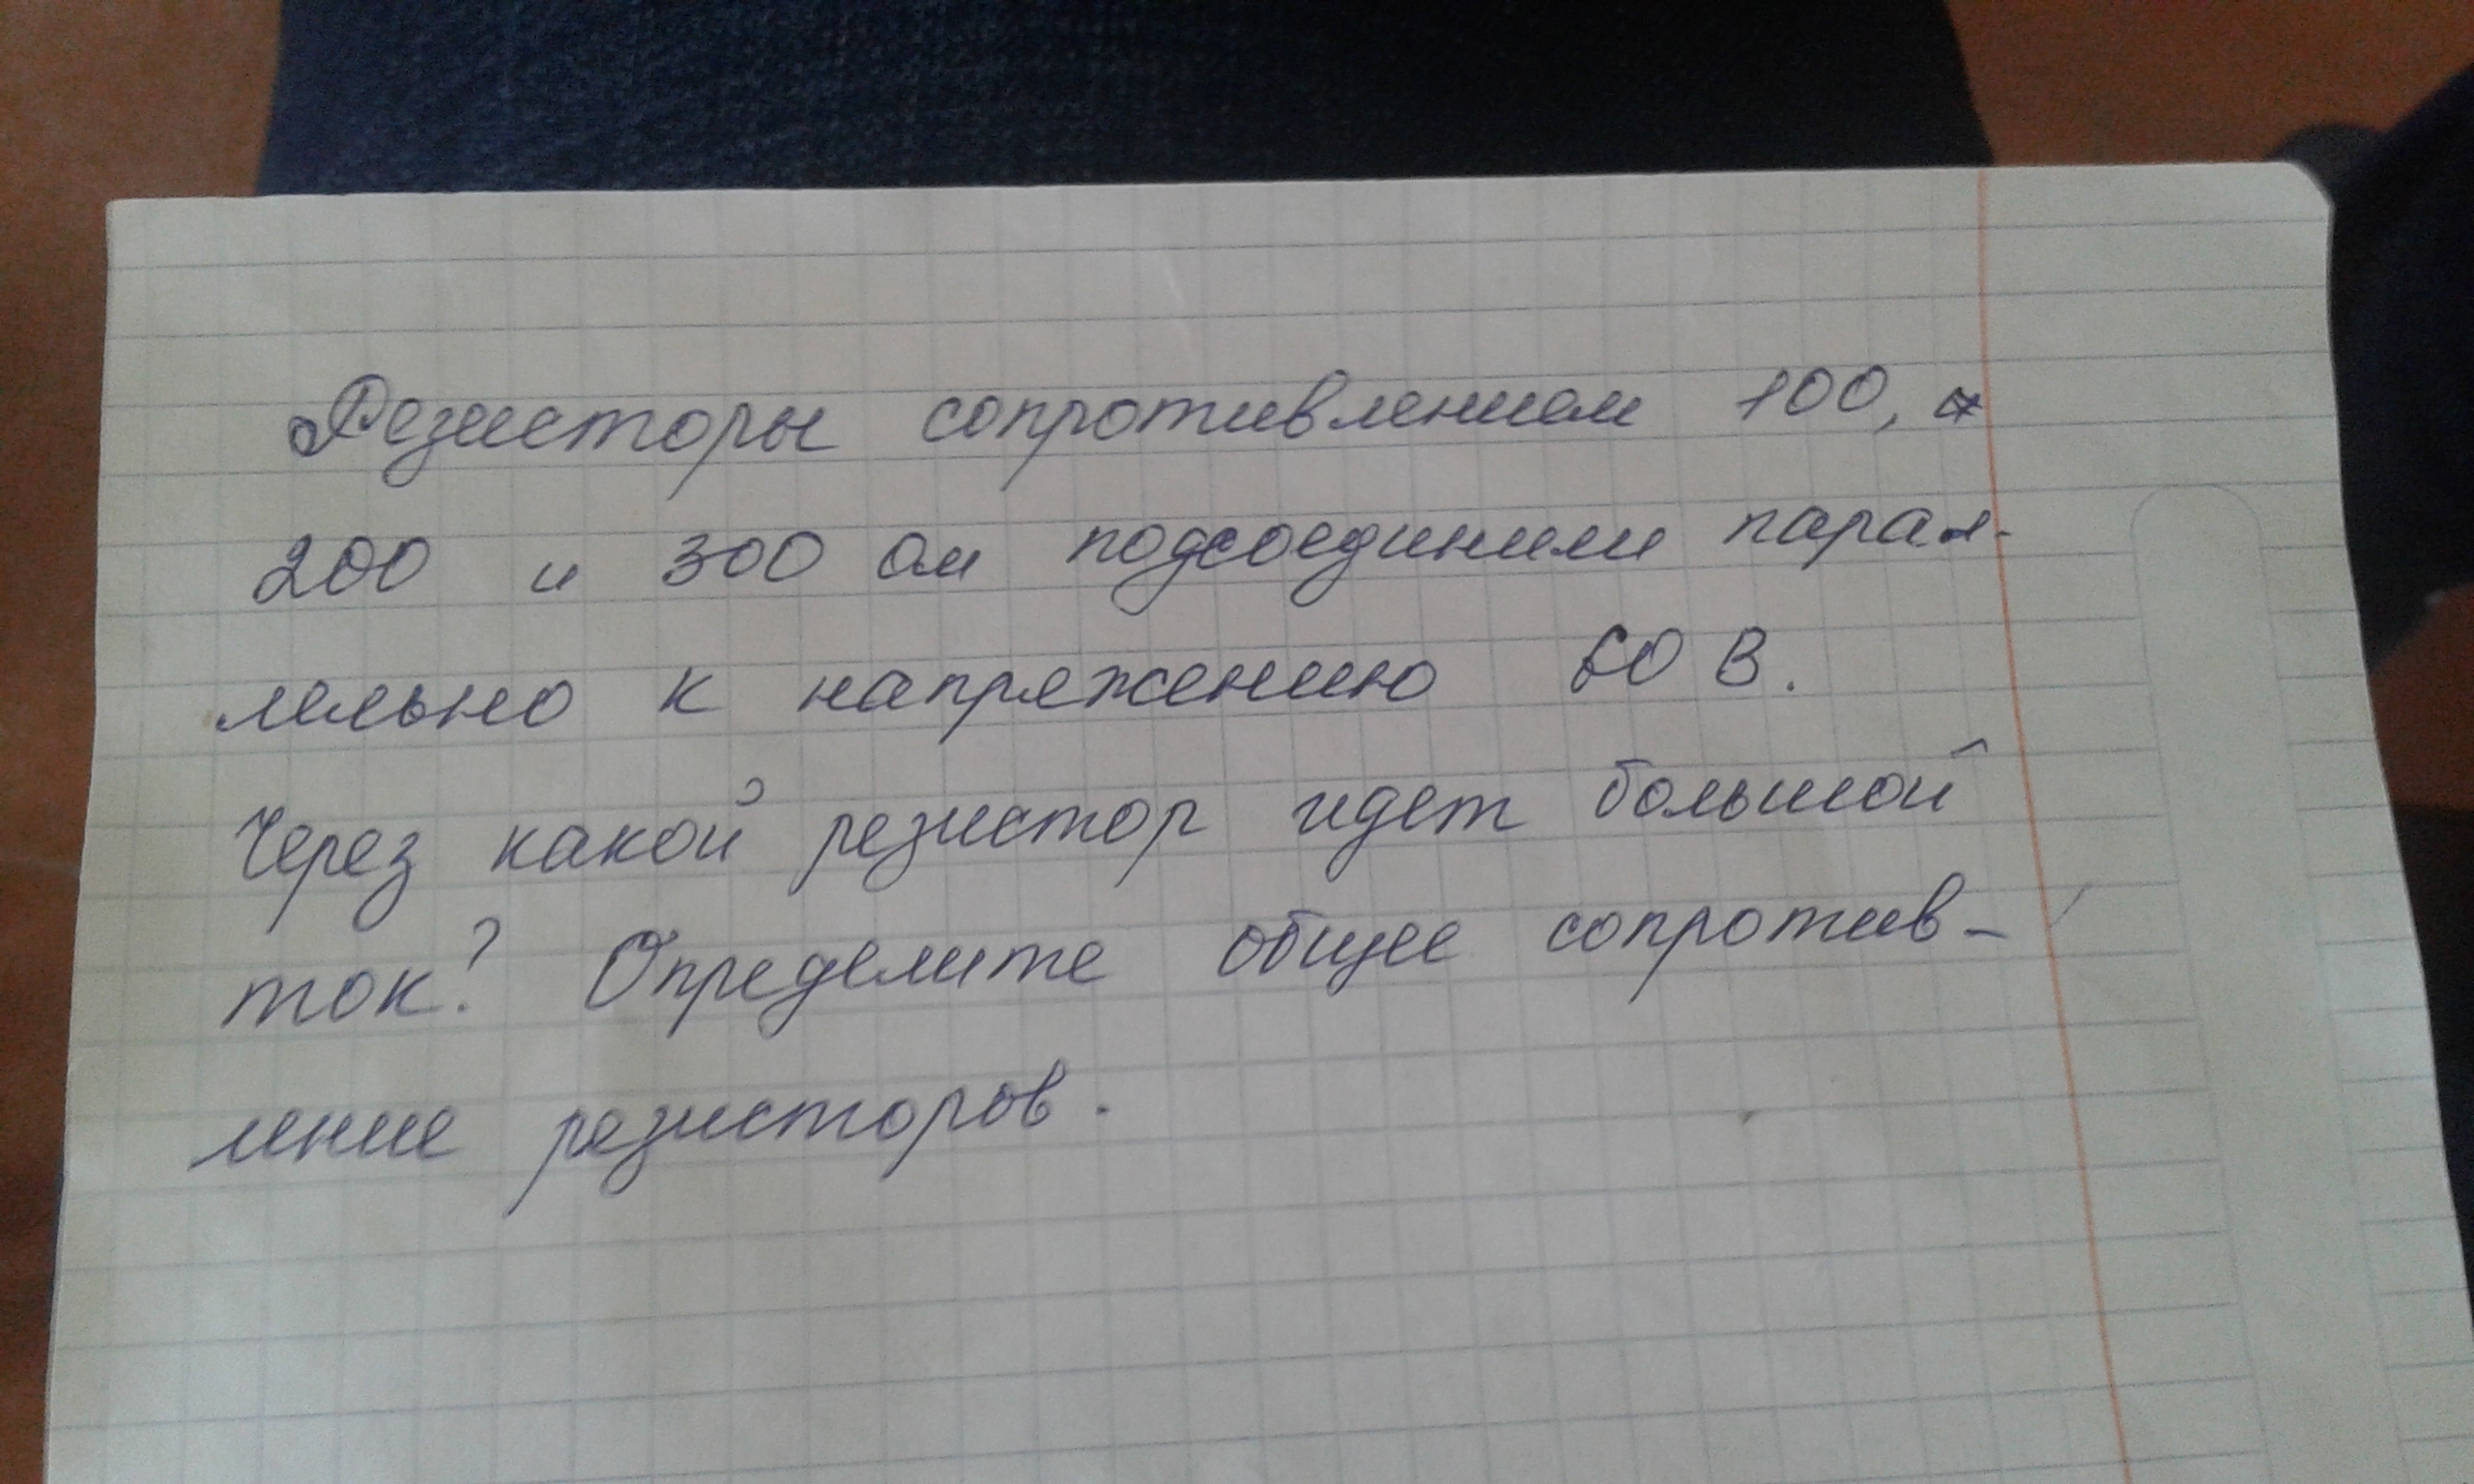 Резисторы сопротивлением 100,
200 и 300 Ом подсоединили парал-
лельно к напряжению 60 В.
Через какой резистор идет больший
ток? Определите общее сопротив-
ление резисторов.